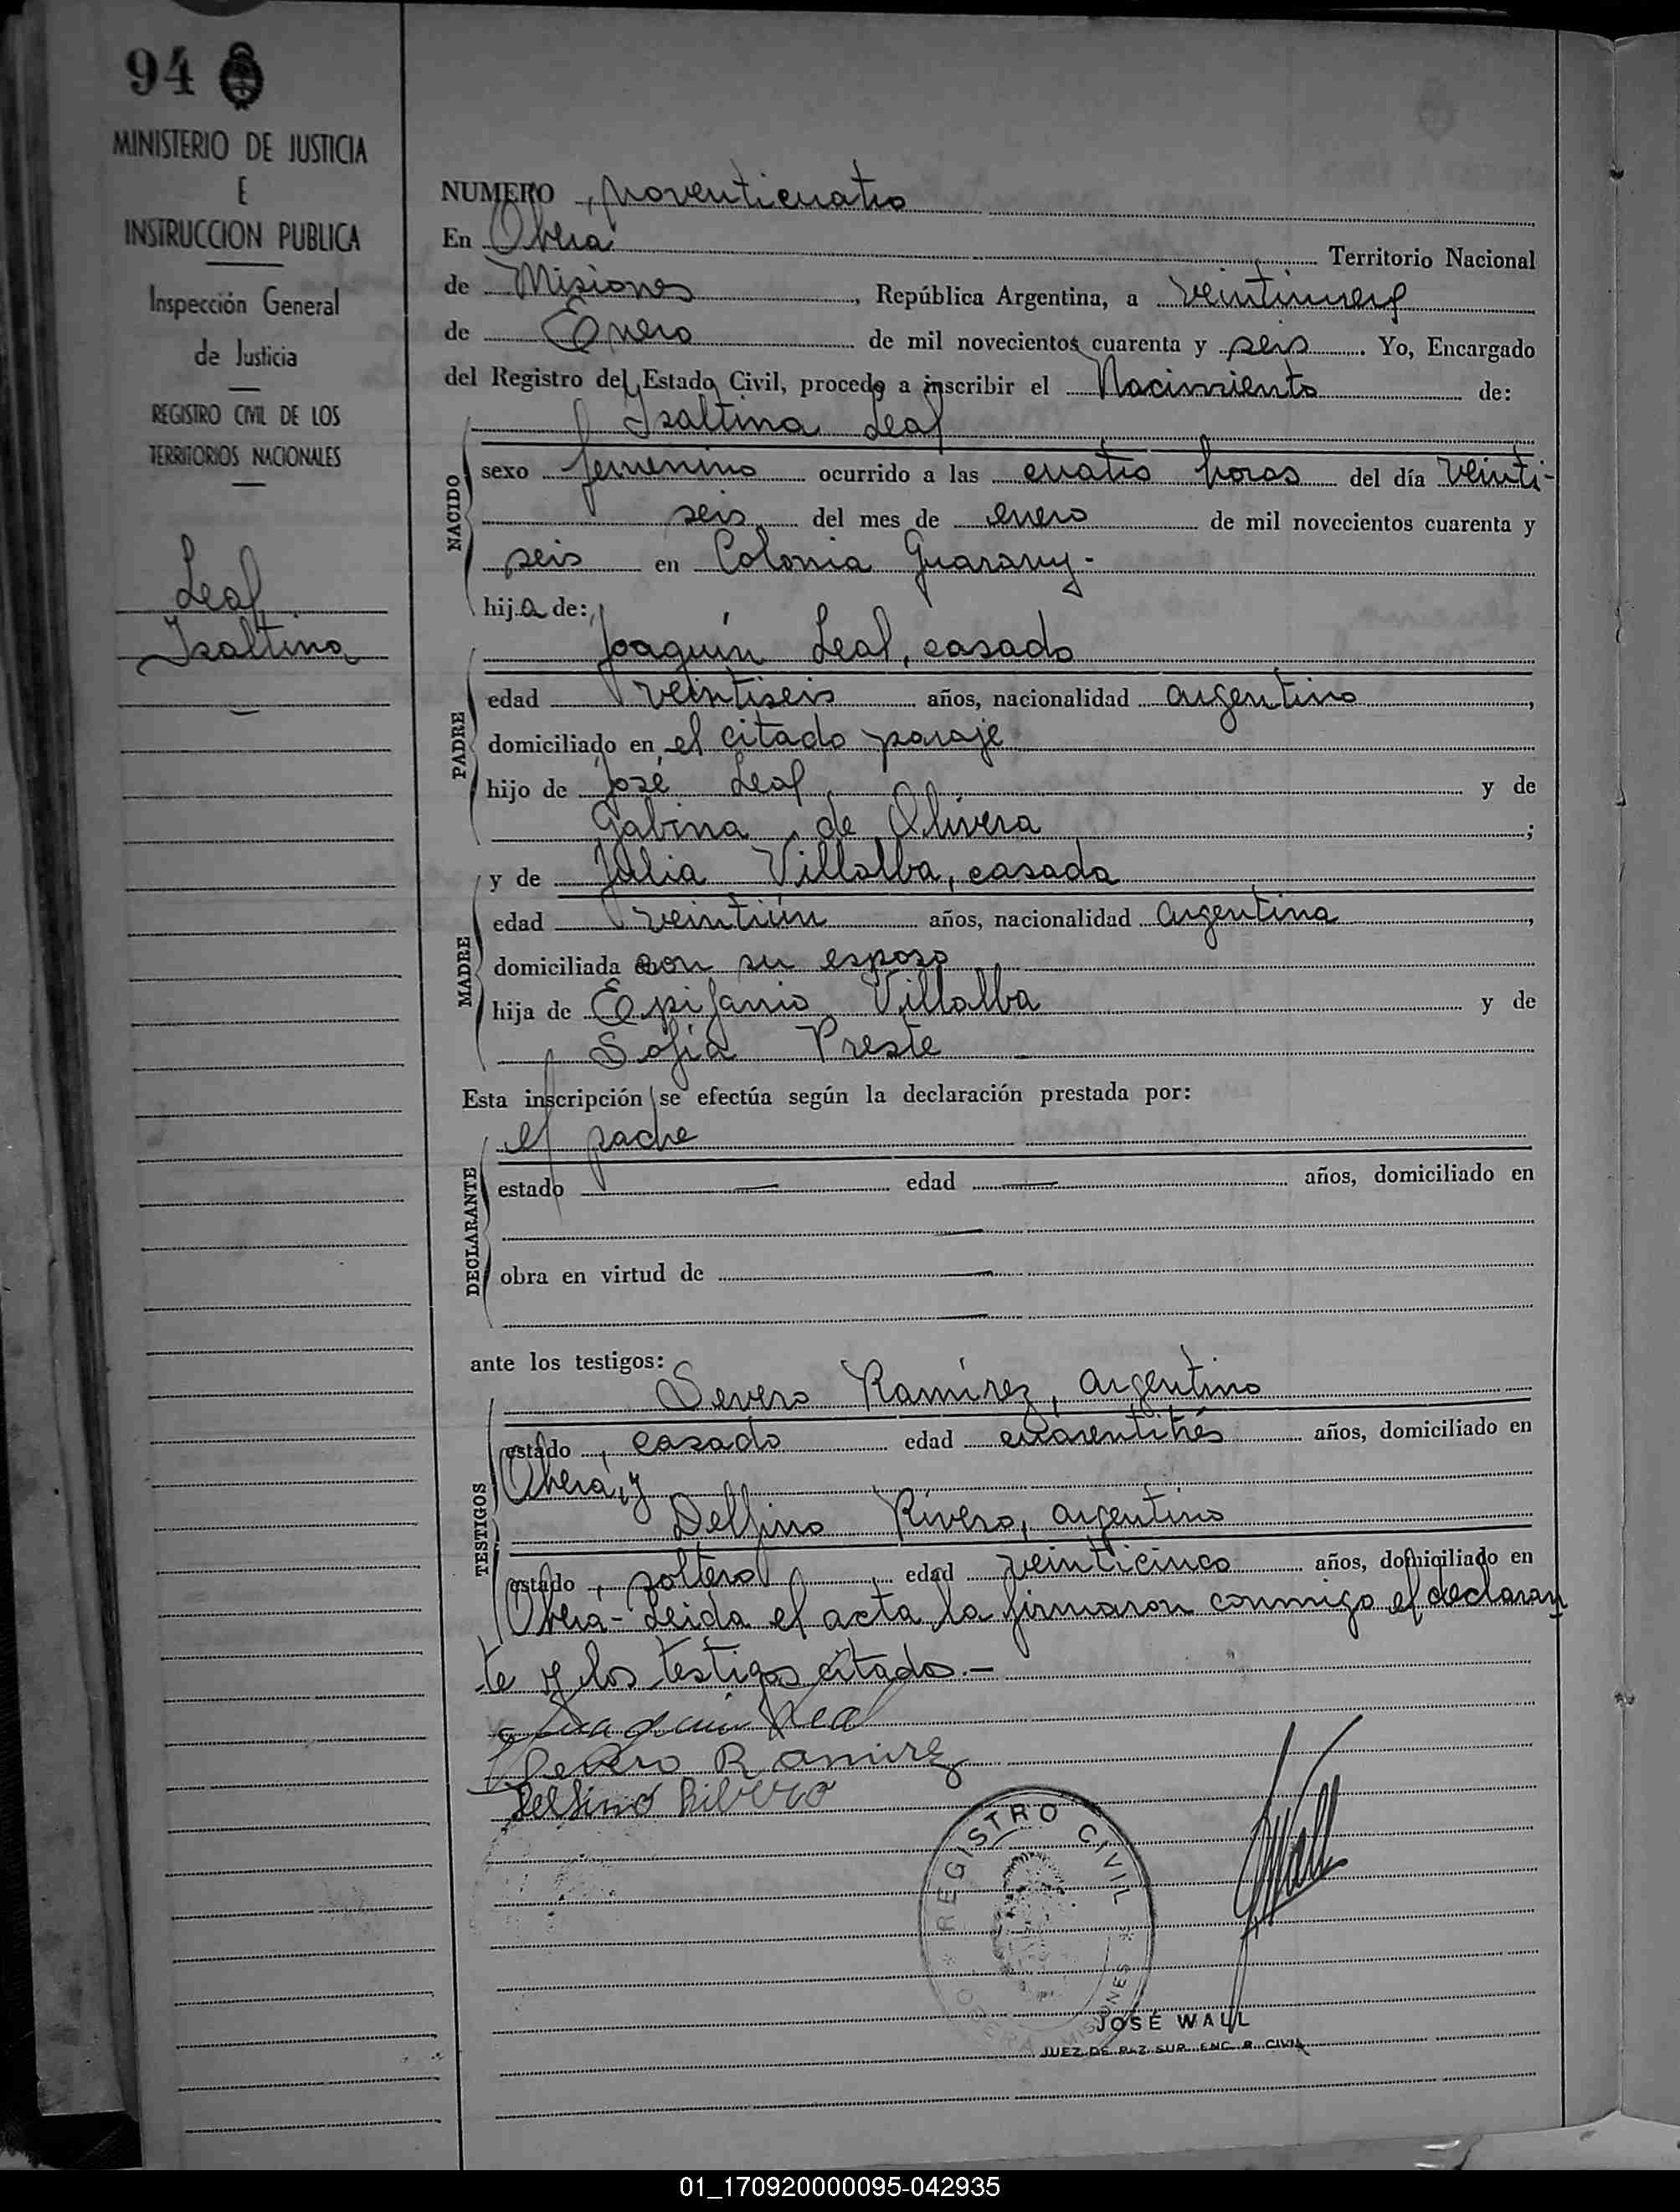 94
MINISTERIO DE JUSTICIA
E
INSTRUCCION PUBLICA
Inspección General
de Justicia
REGISTRO CIVIL DE LOS
TERRITORIOS NACIONALES
Leal
Isaltina
NUMERO noventicuatro
En Oberá Territorio Nacional
de Misiones, República Argentina, a veintinueve
de Enero de mil novecientos cuarenta y seis. Yo, Encargado
del Registro del Estado Civil, procedo a inscribir el Nacimiento de:
Isaltina Leal
NACIDO
sexo femenino ocurrido a las cuatro horas del día veinti-
seis del mes de enero de mil novecientos cuarenta y
seis en Colonia Guarany-
hija de:
Joaquín Leal, casado
PADRE
edad veintiseis años, nacionalidad argentino,
domiciliado en el citado paraje
hijo de José Leal y de
Gabina de Olivera;
y de Julia Villalba, casada
MADRE
edad veintiún años, nacionalidad argentina,
domiciliada con su esposo
hija de Epifanio Villalba y de
Sofía Preste
Esta inscripción se efectúa según la declaración prestada por:
el padre
DECLARANTE
estado — edad — años, domiciliado en
—
obra en virtud de —
—
ante los testigos:
Severo Ramírez, argentino
TESTIGOS
estado, casado edad cuarentitrés años, domiciliado en
Oberá, y
Delfino Rivero, argentino
estado, soltero edad veinticinco años, domiciliado en
Oberá- Leida el acta la firmaron conmigo el declaran
te y los testigos citados.-
Juaquin Leal
Severo Ramirez
Delfino Ribero
REGISTRO CIVIL
OBERA MISIONES
JWall
JOSÉ WALL
JUEZ DE PAZ SUP. ENC. R. CIVIL
01_170920000095-042935